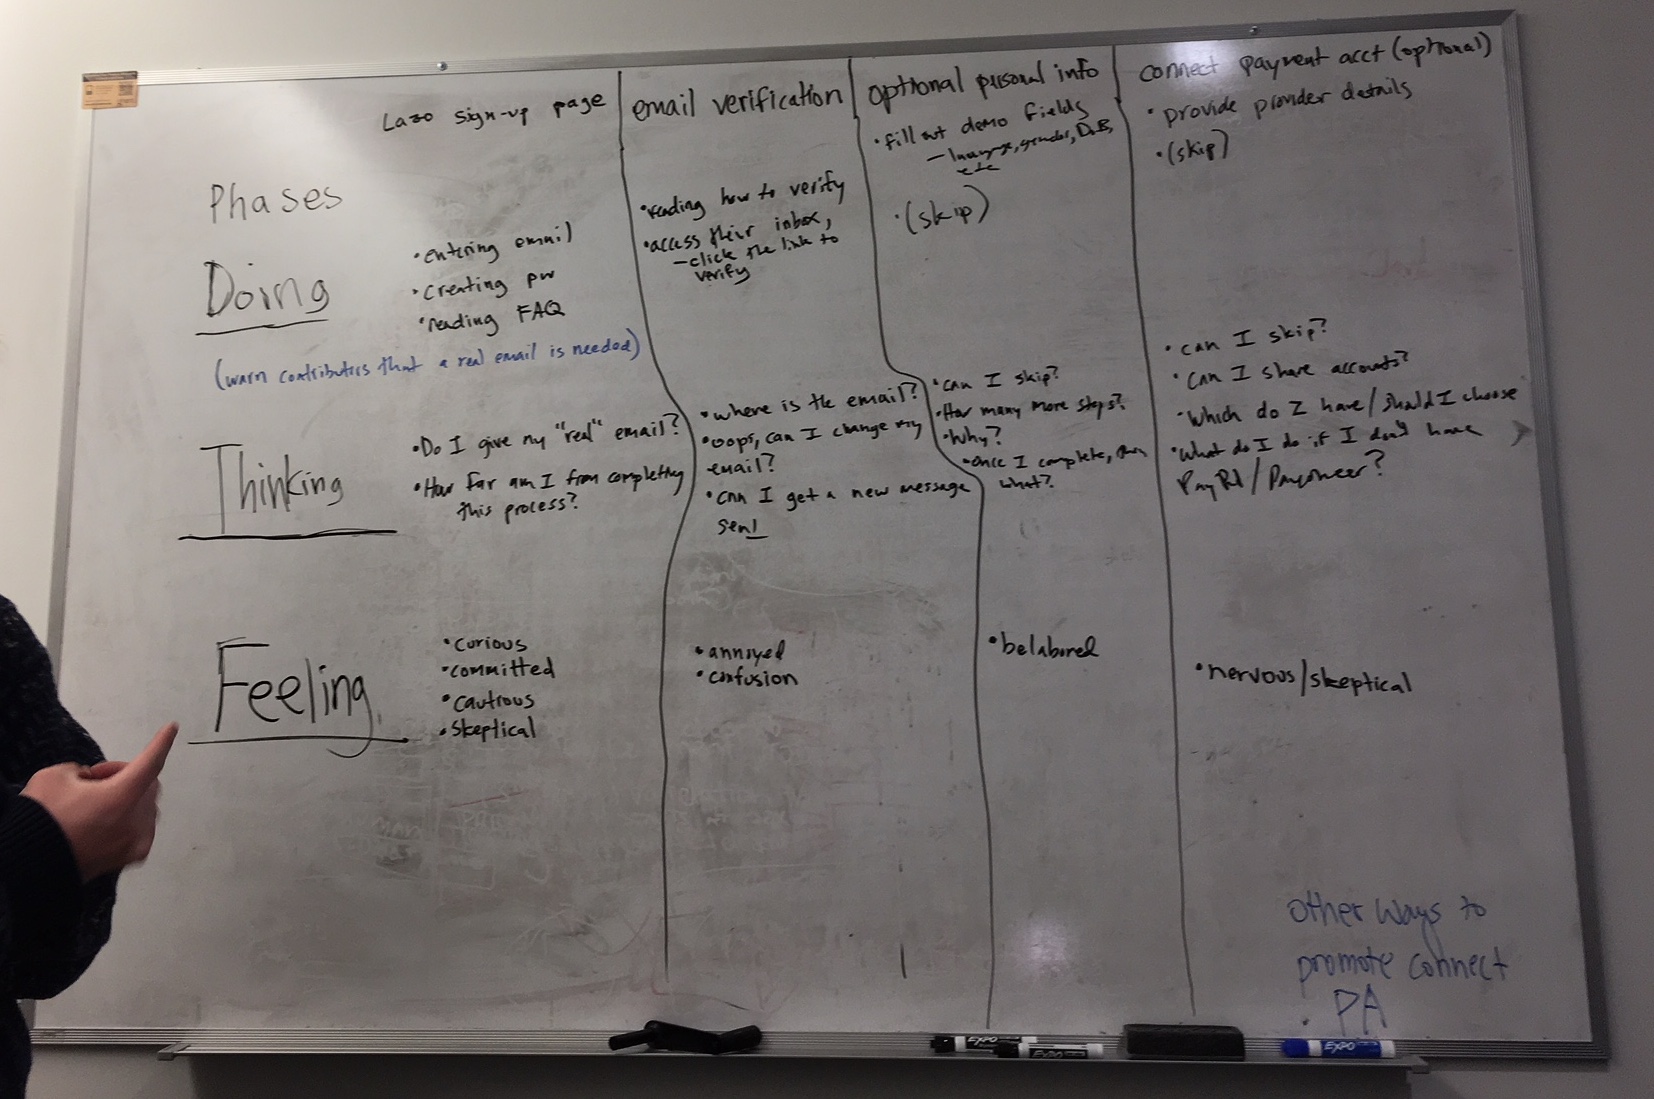 Lazo sign-up page
email verification
optional personal info
connect payment acct (optional)
Phases
Doing
• entering email
• creating pw
• reading FAQ
(warn contributors that a real email is needed)
• reading how to verify
• access their inbox,
– click the link to
verify
• fill out demo fields
– language, gender, DoB,
etc
• (skip)
• provide provider details
• (skip)
Thinking
• Do I give my "real" email?
• How far am I from completing
this process?
• where is the email?
• oops, can I change my
email?
• can I get a new message
sent
• can I skip?
• How many more steps?
• Why?
• Once I complete, then
what?
• can I skip?
• Can I share accounts?
• Which do I have/should I choose
• What do I do if I don't have
PayPal/Payoneer?
Feeling
• curious
• committed
• cautious
• skeptical
• annoyed
• confusion
• belabored
• nervous/skeptical
other ways to
promote connect
PA
EXPO
EXPO
EXPO